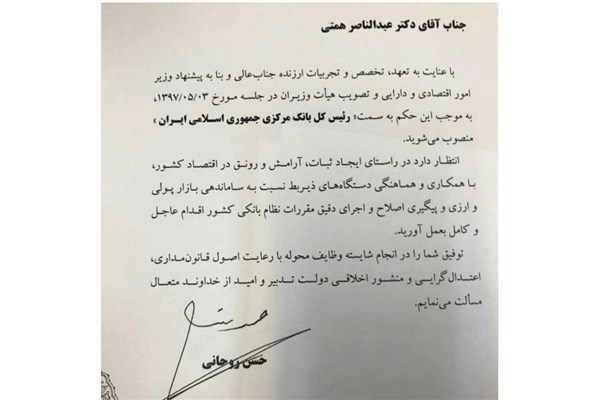 جناب آقای دکتر عبدالناصر همتی
با عنایت به تعهد، تخصص و تجربیات ارزنده جناب‌عالی و بنا به پیشنهاد وزیر
امور اقتصادی و دارایی و تصویب هیأت وزیران در جلسه مورخ ۱۳۹۷/۰۵/۰۳،
به موجب این حکم به سمت« رئیس کل بانک مرکزی جمهوری اسلامی ایران »
منصوب می‌شوید.
انتظار دارد در راستای ایجاد ثبات، آرامش و رونق در اقتصاد کشور،
با همکاری و هماهنگی دستگاه‌های ذیربط نسبت به ساماندهی بازار پولی
و ارزی و پیگیری اصلاح و اجرای دقیق مقررات نظام بانکی کشور اقدام عاجل
و کامل بعمل آورید.
توفیق شما را در انجام شایسته وظایف محوله با رعایت اصول قانون‌مداری،
اعتدال‌گرایی و منشور اخلاقی دولت تدبیر و امید از خداوند متعال
مسألت می‌نمایم.
حسن روحانی